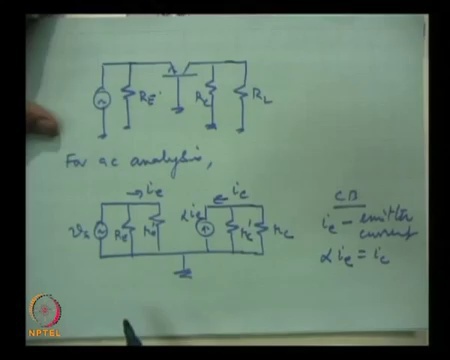 RE
RC
RL
For ac analysis,
→ie
ie
vs
RE
αie
CB
ie - emitter
current
α ie = ic
NPTEL